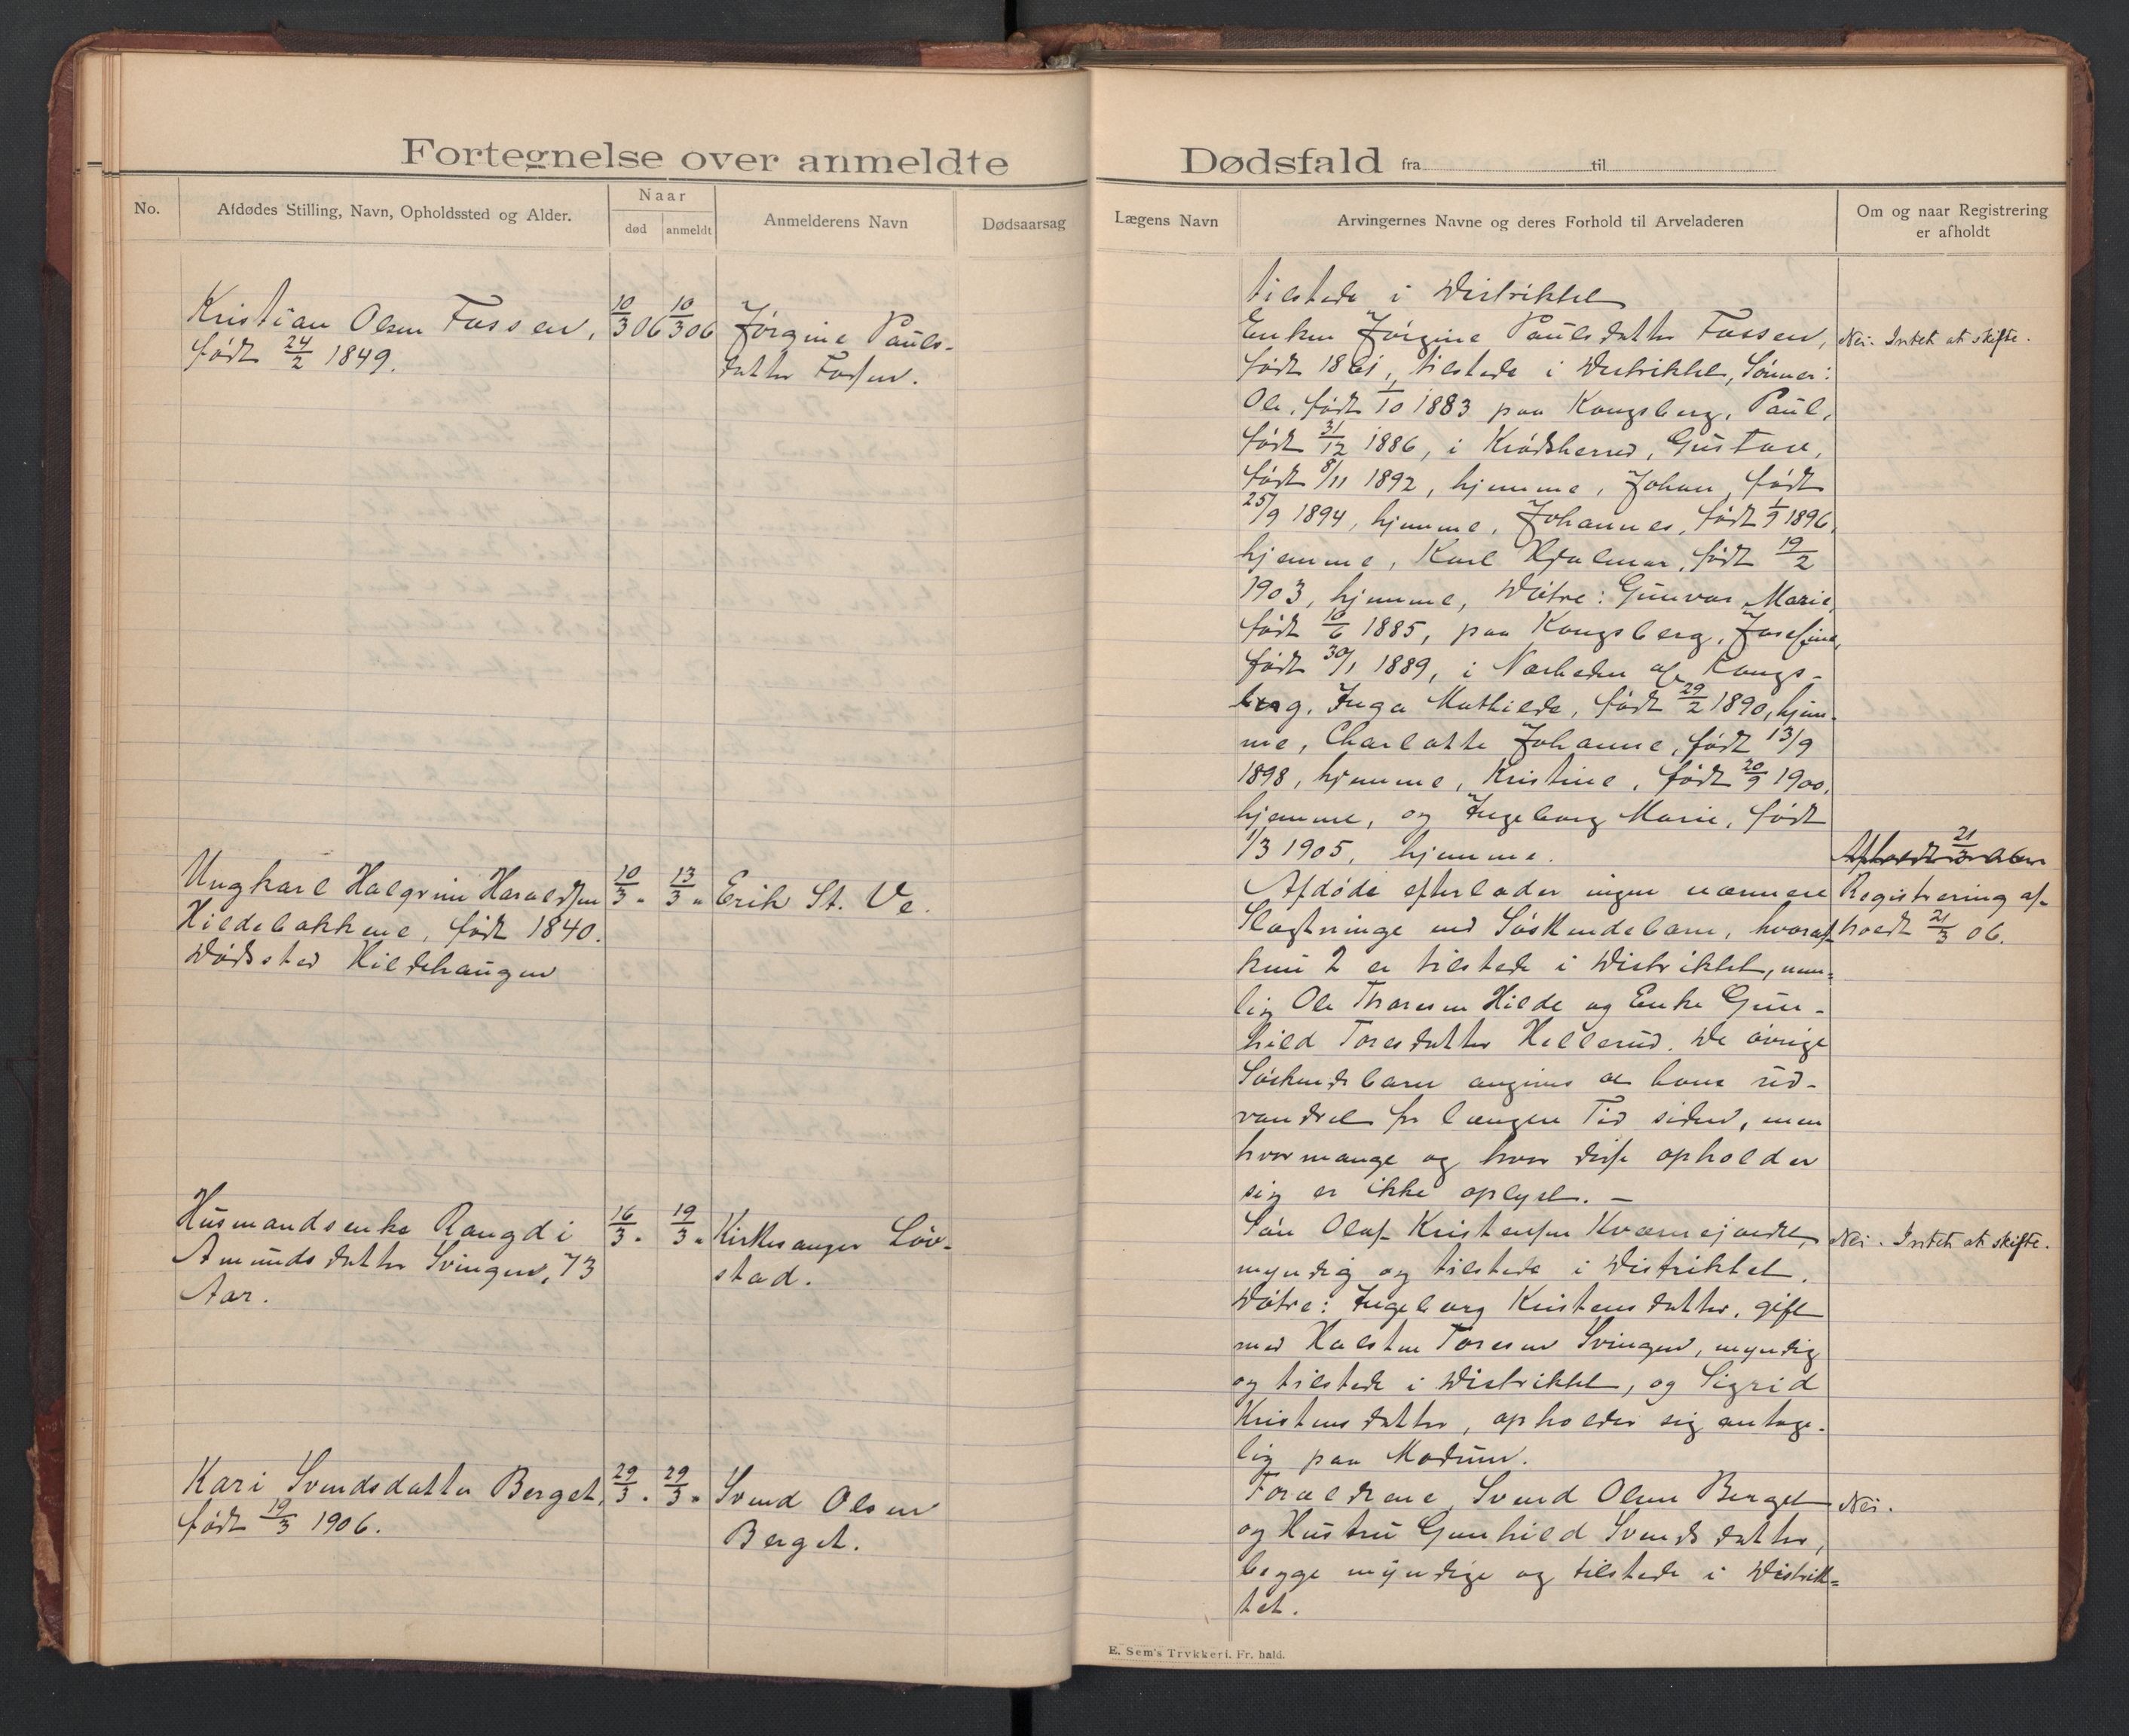 Fortegnelse over anmeldte
No.
Afdødes Stilling, Navn, Opholdssted og Alder.
Naar
død
anmeldt
Anmelderens Navn
Dødsaarsag
Kristian Olsen Fossen,
født 24/2 1849.
10/3 06
10/3 06
Jørgine Pauls-
datter Fossen.
Ungkarl Halgrim Haraldsen
Hildebakkene, født 1840.
Dødssted Hildehaugen
10/3 "
13/3 "
Erik St. Ve.
Husmandsenke Rangdi
Amundsdatter Svingen, 73
Aar.
16/3 "
19/3 "
Kirkesanger Løv-
stad.
Kari Svendsdatter Berget,
født 19/3 1906.
29/3 "
29/3 "
Svend Olsen
Berget.
Dødsfald fra til
Lægens Navn
Arvingernes Navne og deres Forhold til Arveladeren
Om og naar Registrering
er afholdt
tilstede i Distriktet
Enken Jørgine Paulsdatter Fossen,
født 1861, tilstede i Distriktet, Sønner:
Ole, født 1/10 1883 paa Kongsberg, Paul,
født 31/12 1886, i Krødsherred, Gustav,
født 8/11 1892, hjemme, Johan, født
25/9 1894, hjemme, Johannes, født 1/9 1896,
hjemme, Karl Hjalmar, født 19/2
1903, hjemme, Døtre: Gunvor Marie,
født 10/6 1885, paa Kongsberg, Josefine,
født 30/1 1889, i Nærheden af Kongs-
berg, Inga Mathilde, født 29/2 1890, hjem-
me, Charlotte Johanne, født 13/9
1898, hjemme, Kristine, født 20/9 1900,
hjemme, og Ingeborg Marie, født
1/3 1905, hjemme.
Nei. Intet at skifte.
Afdøde efterlader ingen nærmere
Slægtninge end Søskendebarn, hvoraf
kun 2 er tilstede i Distriktet, nem-
lig Ole Thoresen Hilde og Enke Gun-
hild Toresdatter Hellerud. De øvrige
Søskendebarn angives at have ud-
vandret for længere Tid siden, men
hvormange og hvor disse opholder
sig er ikke oplyst. -
Afholdt 21/3
Registrering af-
holdt 21/3 06.
Søn Olaf Kristensen Kværnejordet,
myndig og tilstede i Distriktet.
Døtre: Ingeborg Kristensdatter, gift
med Halsten Toresen Svingen, myndig
og tilstede i Distriktet, og Sigrid
Kristensdatter, opholder sig antage-
lig paa Modum.
Nei. Intet at skifte.
Forældrene, Svend Olsen Berget
og Hustru Gunhild Svendsdatter,
begge myndige og tilstede i Distrik-
tet.
Nei.
E. Sem's Trykkeri. Fr. hald.